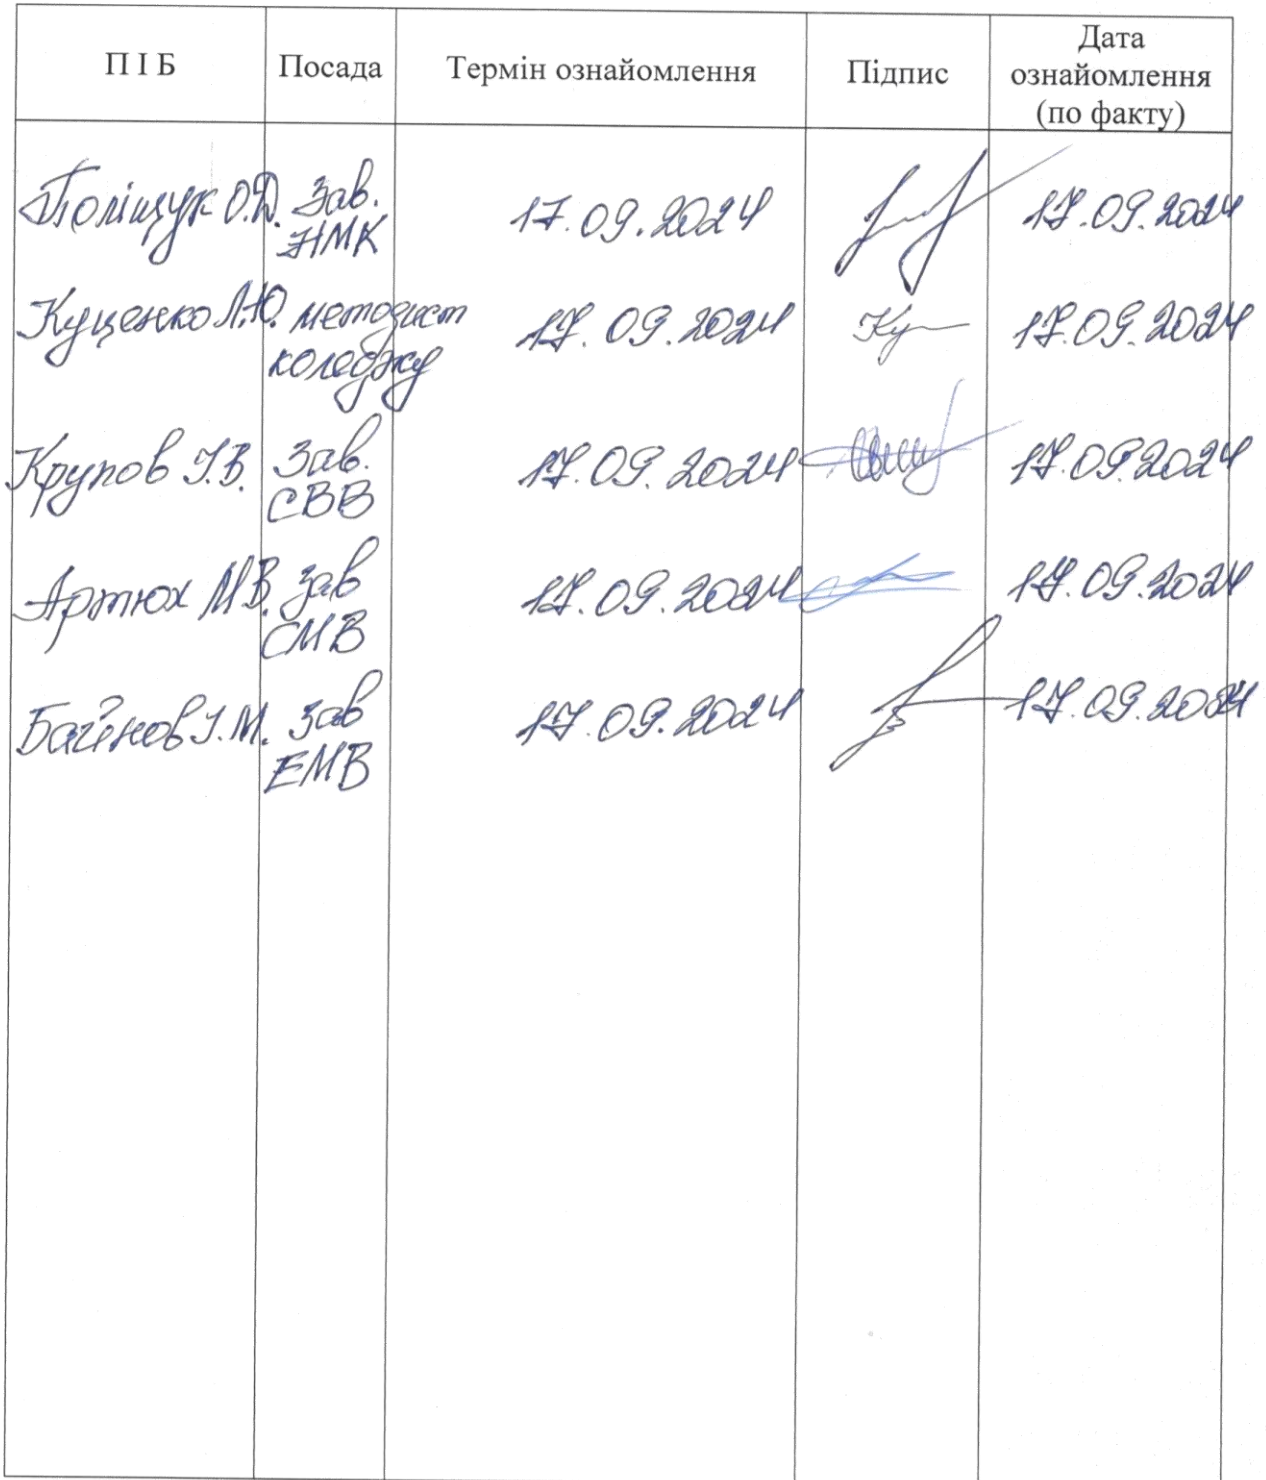 П І Б Посада Термін ознайомлення Підпис Дата ознайомлення (по факту)
Поліщук О.Д. Зав. НМК 17.09.2024 17.09.2024
Куценко Л.Ю. методист коледжу 17.09.2024 Ку 17.09.2024
Крупов І.В. Зав. СВВ 17.09.2024 17.09.2024
Артюх М.В. Зав СМВ 17.09.2024 17.09.2024
І.М. Зав ЕМВ 17.09.2024 17.09.2024